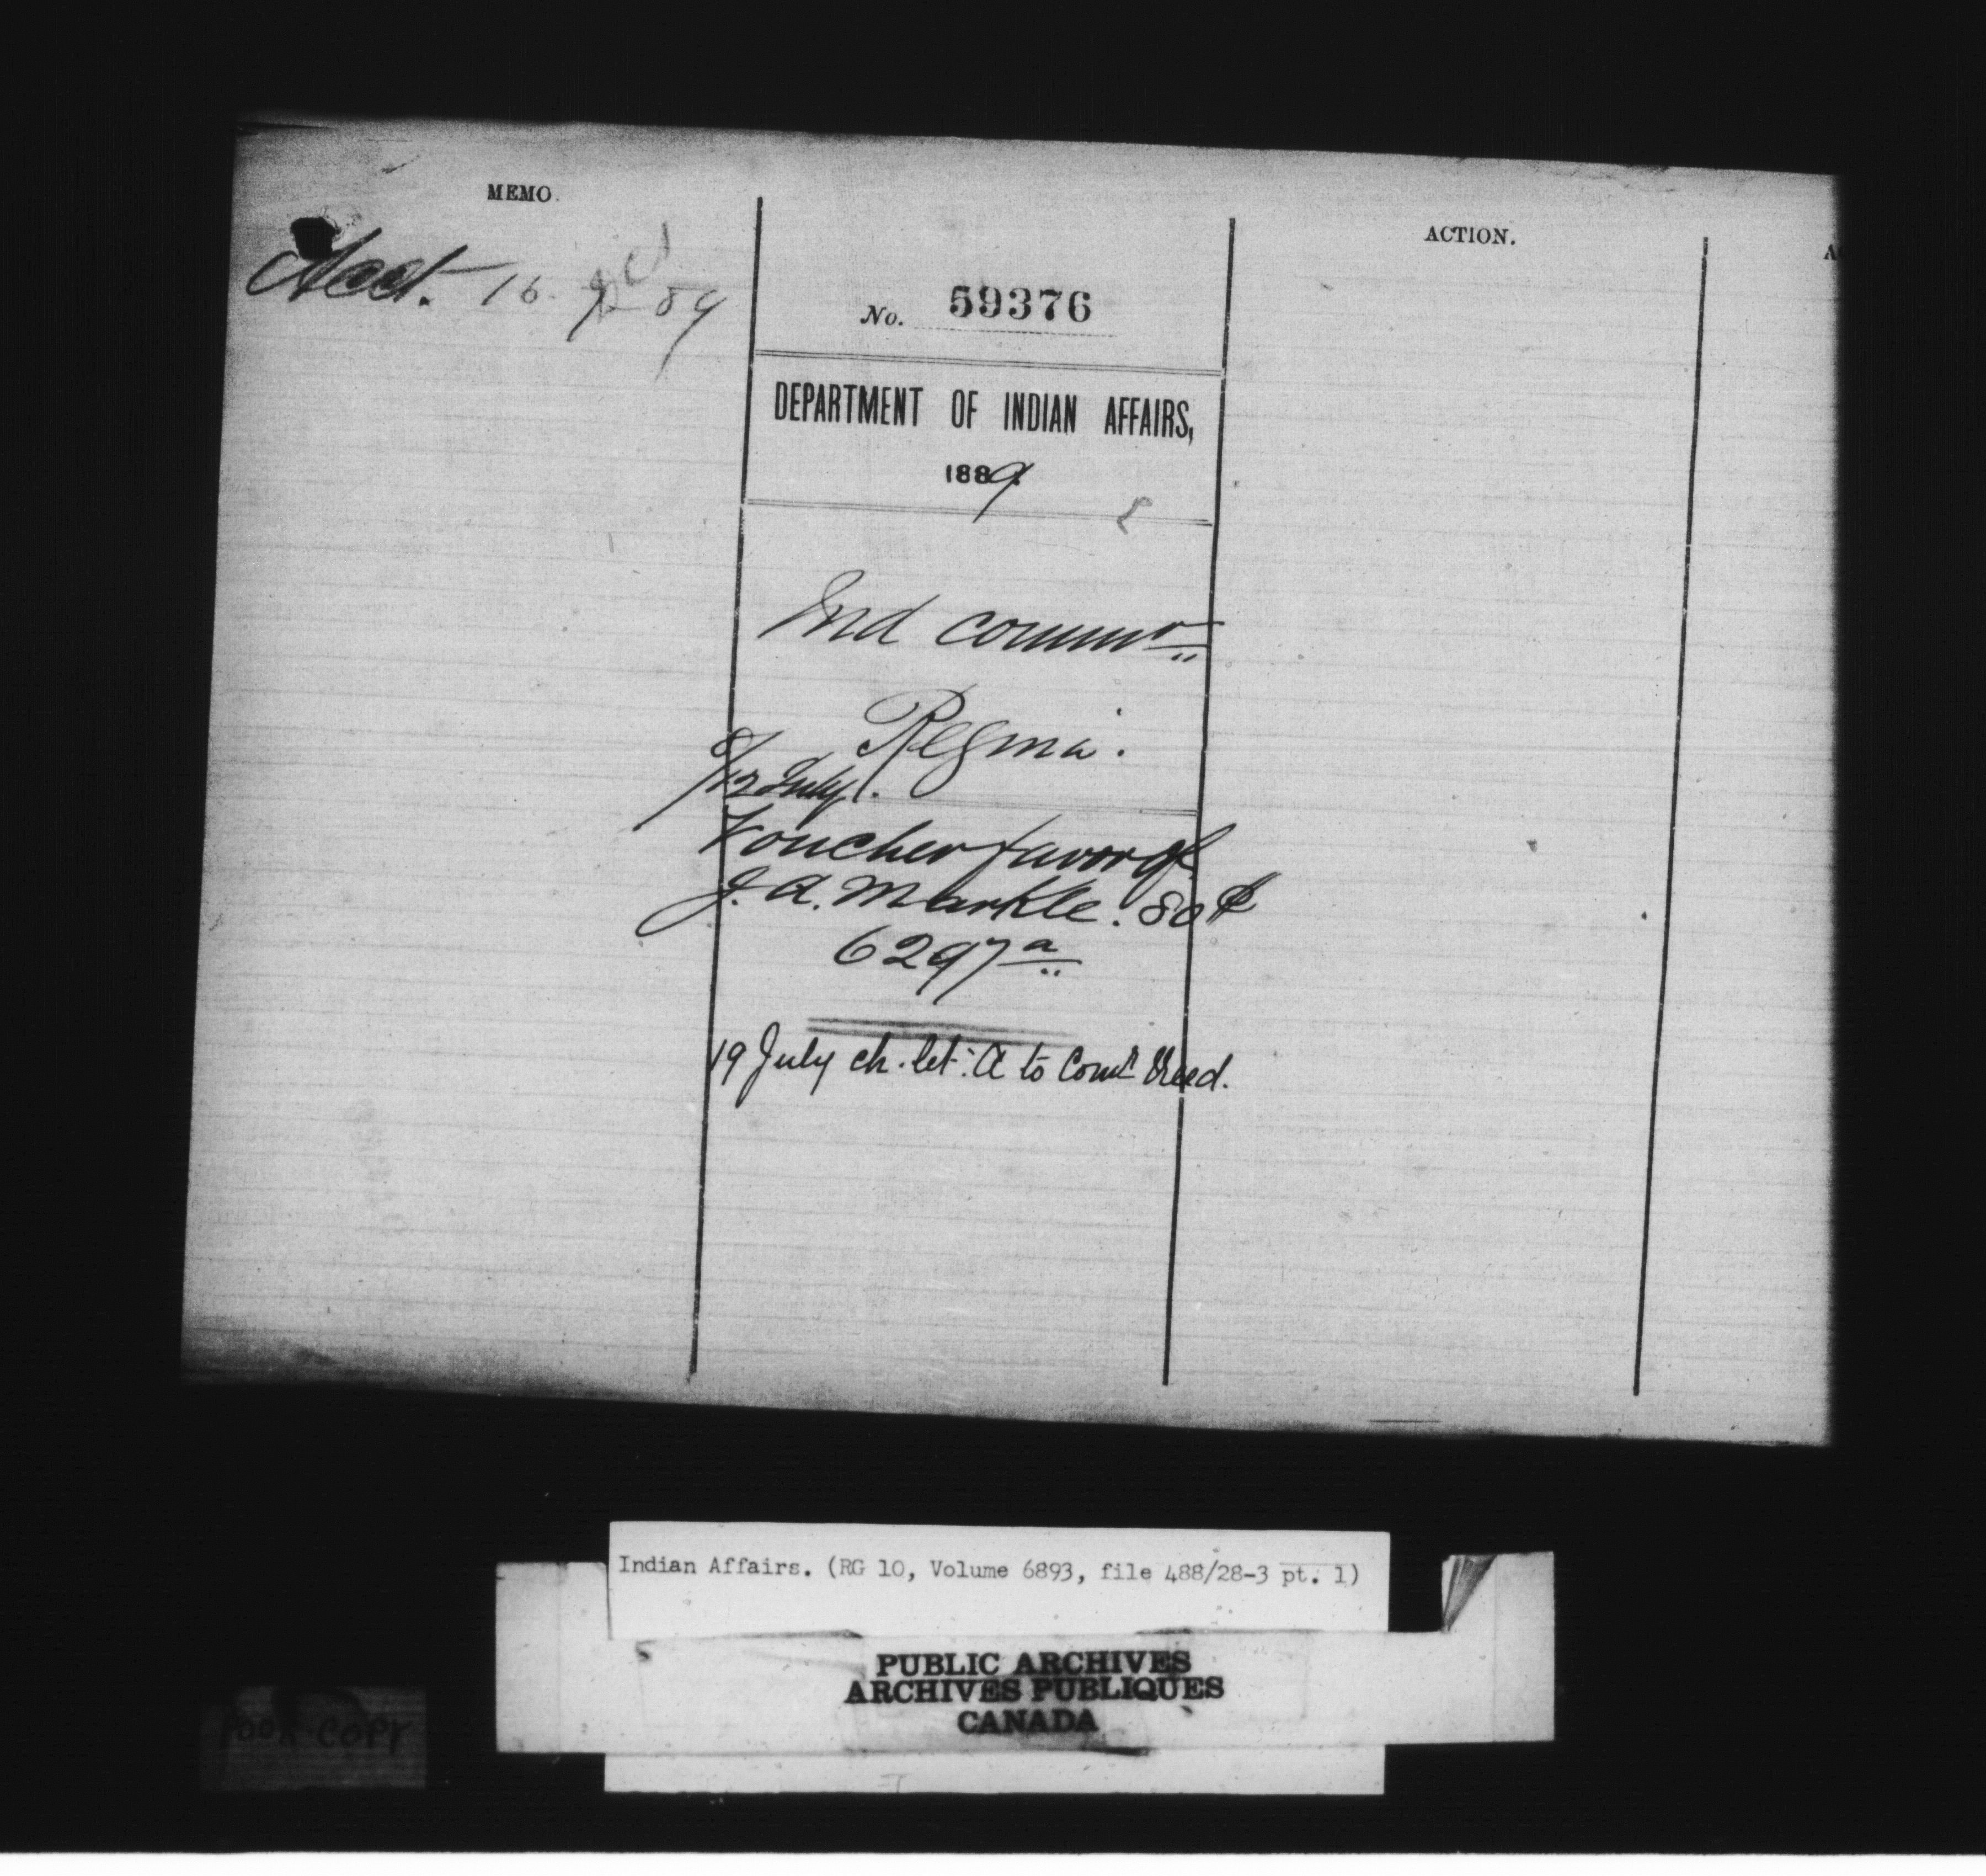 MEMO.
Acct. 16. 89
No. 59376
DEPARTMENT OF INDIAN AFFAIRS,
1889
Ind commr
Regina.
8/12 July.
Voucher favor of
J. A. Markle. 80¢
6297a
19 July ch. let: A to Comr Reed.
ACTION.
A
Indian Affairs. (RG 10, Volume 6893, file 488/28-3 pt. 1)
5
PUBLIC ARCHIVES
ARCHIVES PUBLIQUES
CANADA
POOR COPY